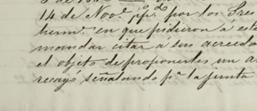 14 de Nov.e ppdo por los Sres
herm.s en que pidieron á esta
mandar citar á sus acreedo
el objeto de proponerles un a
recayó señalando p.a la junta